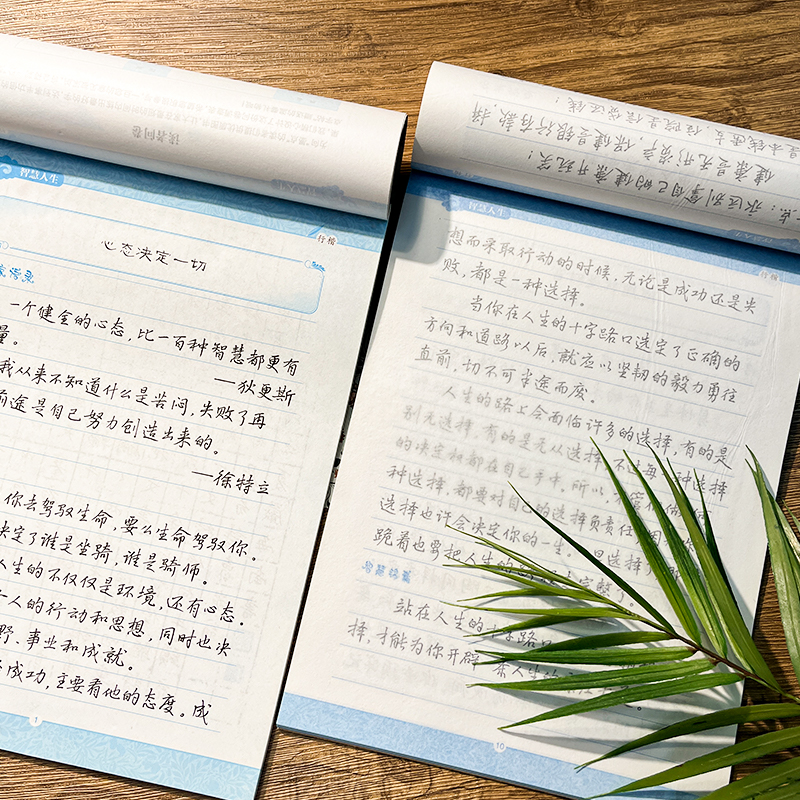 读者问卷
智慧人生
行楷
心态决定一切
一个健全的心态，比一百种智慧都更有
量。
——狄更斯
我从来不知道什么是苦闷，失败了再
前途是自己努力创造出来的。
——徐特立
你去驾驭生命，要么生命驾驭你。
决定了谁是坐骑，谁是骑师。
人生的不仅仅是环境，还有心态。
个人的行动和思想，同时也决
野、事业和成就。
成功，主要看他的态度。成
1
点：永远别拿自己的健康开玩笑；
健康是无形资产，保健是银行存款，拼
智慧人生
行楷
想而采取行动的时候，无论是成功还是失
败，都是一种选择。
当你在人生的十字路口选定了正确的
方向和道路以后，就应以坚韧的毅力勇往
直前，切不可半途而废。
人生的路上会面临许多的选择，有的是
别无选择，有的是无从选择，不过每一种选择
的决定权都在自己手中。所以
种选择，都要对自己的选择负责任
选择也许会决定你的一生。
跪着也要把人生的
了。
站在人生的十字路口
择，才能为你开辟一条人生的
10